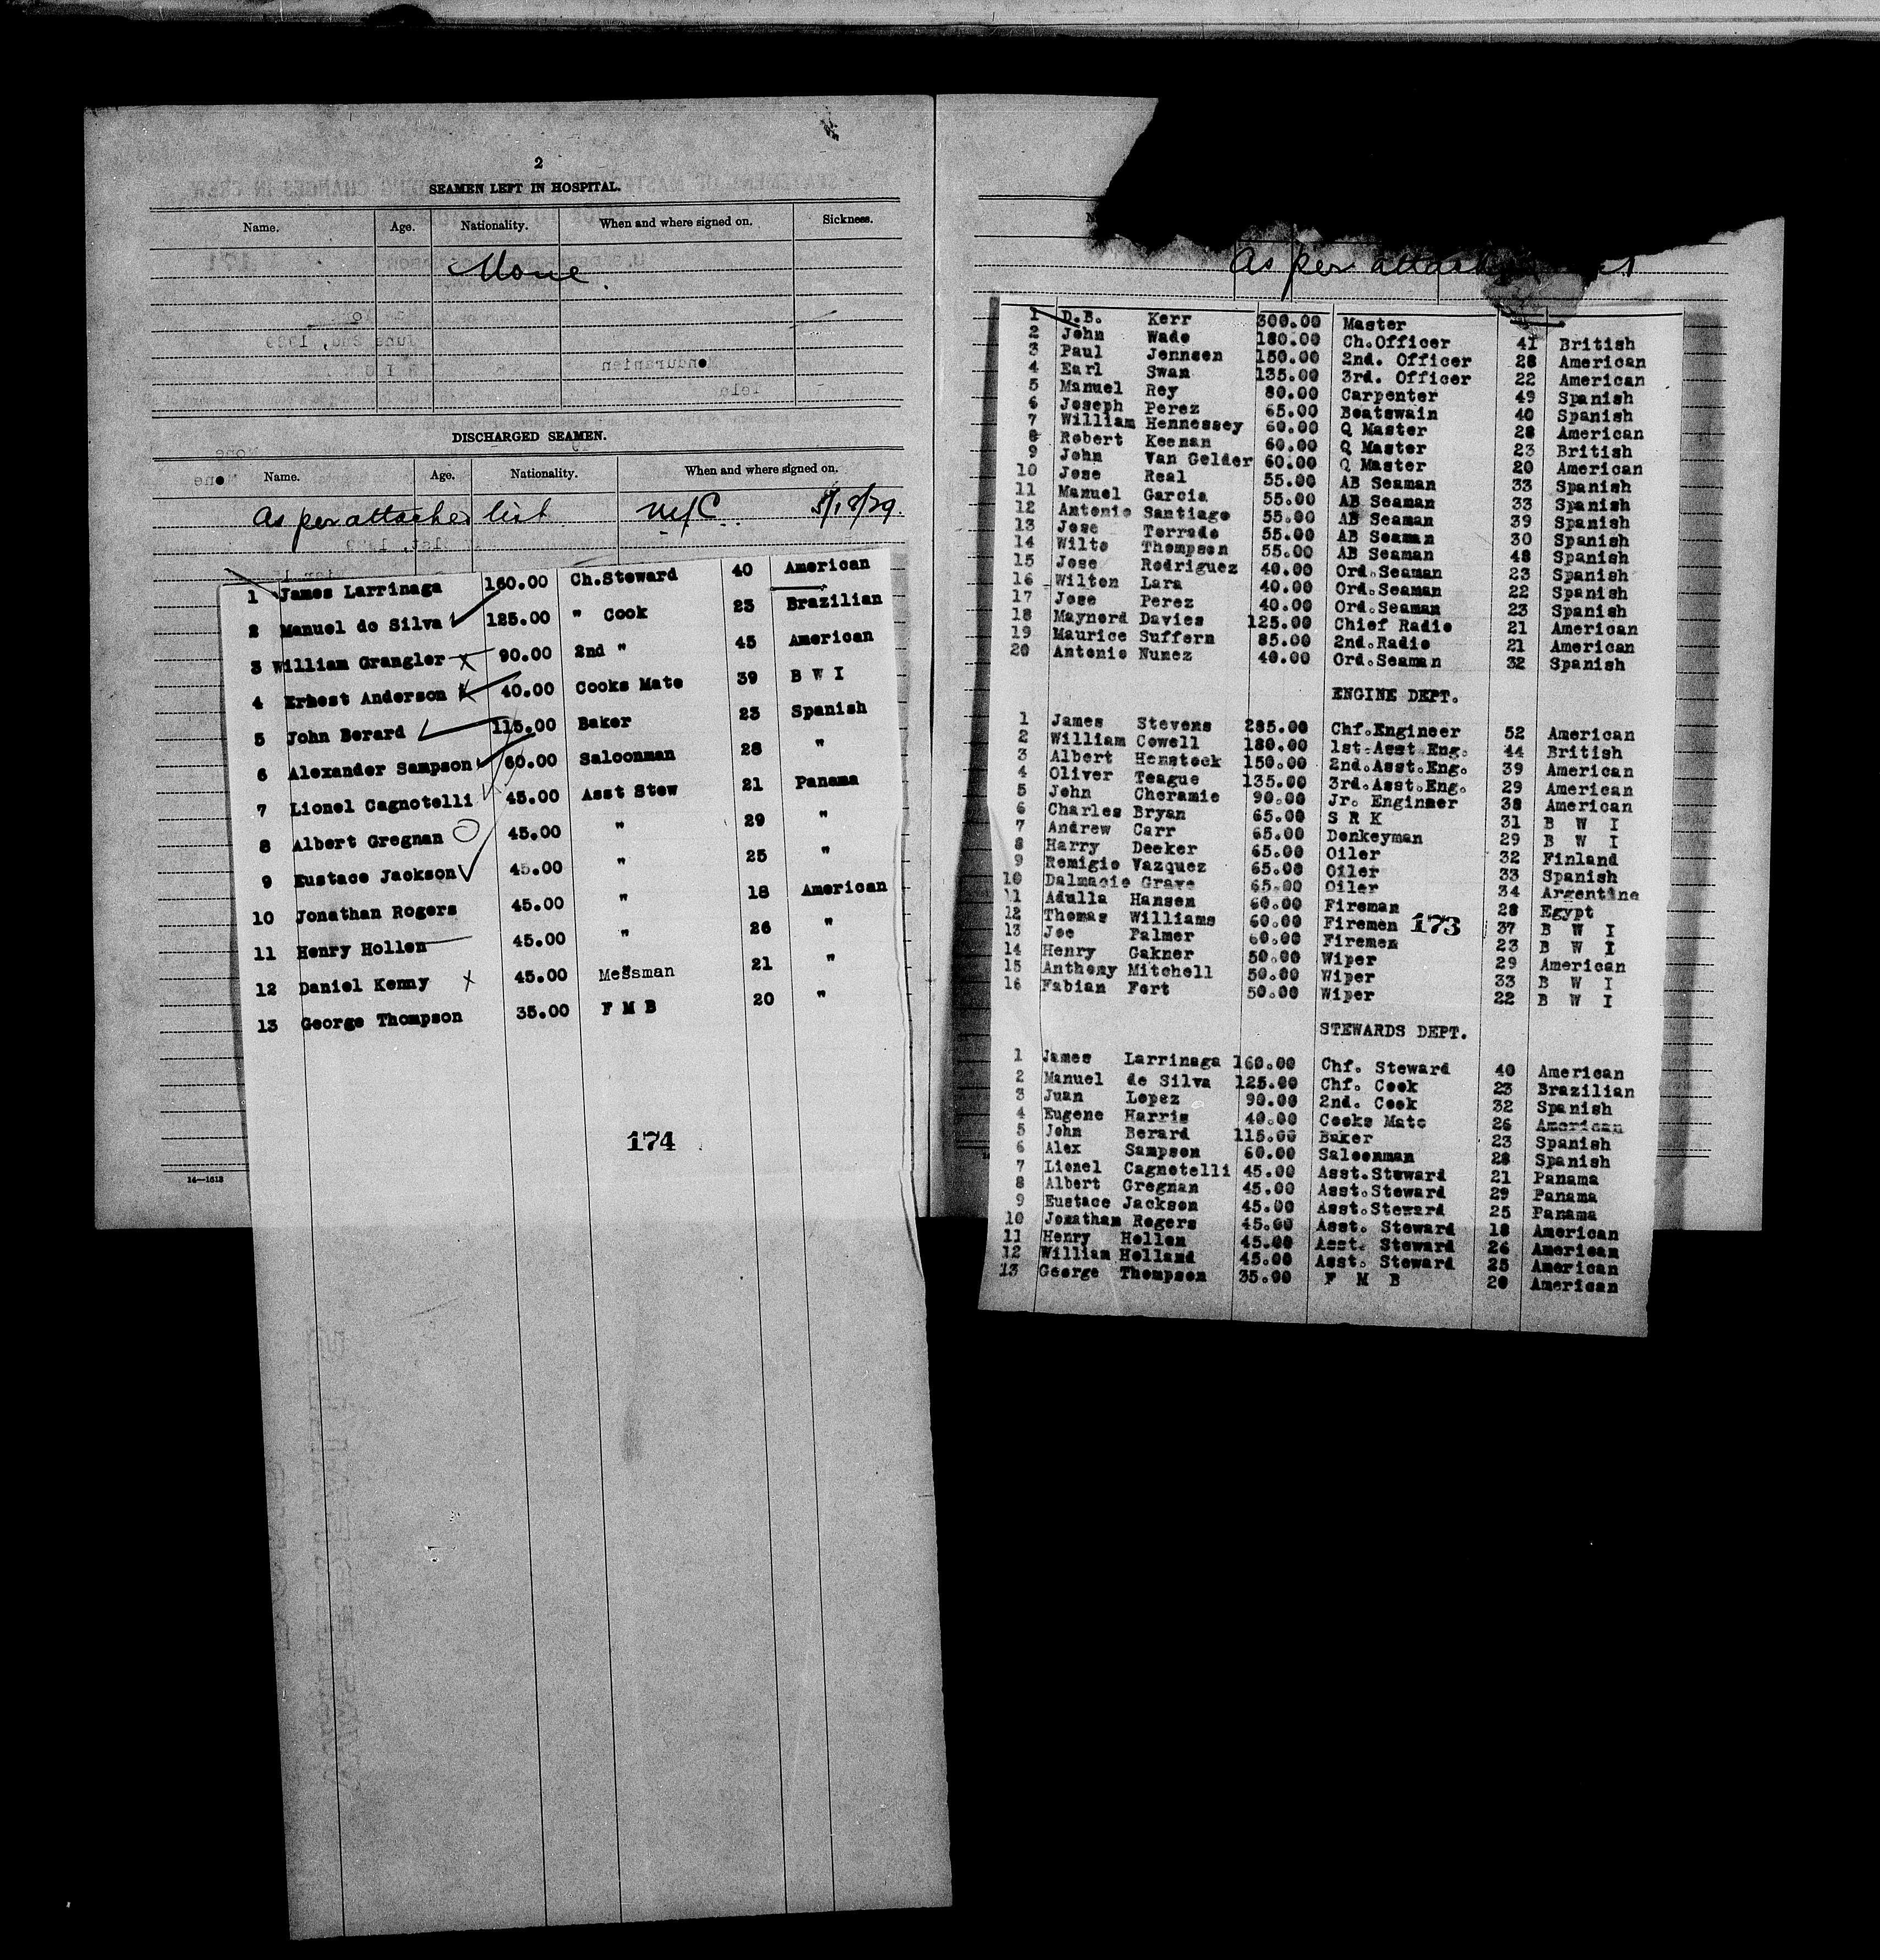 2
SEAMEN LEFT IN HOSPITAL.
Name. Age. Nationality. When and where signed on. Sickness.
None.
DISCHARGED SEAMEN.
Name. Age. Nationality. When and where signed on.
As per attached list 5/18/29.
1 James Larrinaga 160.00 Ch.Steward 40 American
2 Manuel de Silva 125.00 " Cook 23 Brazilian
3 William Grangler 90.00 2nd " 45 American
4 Ernest Anderson 40.00 Cooks Mate 39 B W I
5 John Berard 115.00 Baker 23 Spanish
6 Alexander Sampson 60.00 Saloonman 28 "
7 Lionel Cagnotelli 45.00 Asst Stew 21 Panama
8 Albert Gregnan 45.00 " 29 "
9 Eustace Jackson 45.00 " 25 "
10 Jonathan Rogers 45.00 " 18 American
11 Henry Hollen 45.00 " 26 "
12 Daniel Kenny 45.00 Messman 21 "
13 George Thompson 35.00 F M B 20 "
174
14—1613
As per
1 D.B. Kerr 300.00 Master 41 British
2 John Wade 180.00 Ch.Officer 28 American
3 Paul Jennsen 150.00 2nd. Officer 22 American
4 Earl Swan 135.00 3rd. Officer 49 Spanish
5 Manuel Rey 80.00 Carpenter 40 Spanish
6 Joseph Perez 65.00 Boatswain 28 American
7 William Hennessey 60.00 Q Master 23 British
8 Robert Keenan 60.00 Q Master 20 American
9 John Van Gelder 60.00 Q Master 33 Spanish
10 Jose Real 55.00 AB Seaman 33 Spanish
11 Manuel Garcia 55.00 AB Seaman 39 Spanish
12 Antonio Santiago 55.00 AB Seaman 30 Spanish
13 Jose Terrado 55.00 AB Seaman 48 Spanish
14 Wilto Thompson 55.00 AB Seaman 23 Spanish
15 Jose Rodriguez 40.00 Ord.Seaman 22 Spanish
16 Wilton Lara 40.00 Ord.Seaman 23 Spanish
17 Jose Perez 40.00 Ord.Seaman 21 American
18 Maynerd Davies 125.00 Chief Radio 21 American
19 Maurice Suffern 85.00 2nd.Radio 32 Spanish
20 Antonio Nunez 40.00 Ord.Seaman
ENGINE DEPT.
1 James Stevens 285.00 Chf.Engineer 52 American
2 William Cowell 180.00 1st.Asst Eng. 44 British
3 Albert Hemstock 150.00 2nd.Asst.Eng. 39 American
4 Oliver Teague 135.00 3rd.Asst.Eng. 29 American
5 John Cheramie 90.00 Jr. Engineer 38 American
6 Charles Bryan 65.00 S R K 31 B W I
7 Andrew Carr 65.00 Donkeyman 29 B W I
8 Harry Decker 65.00 Oiler 32 Finland
9 Remigio Vazquez 65.00 Oiler 33 Spanish
10 Dalmacio Grave 65.00 Oiler 34 Argentine
11 Adulla Hansen 60.00 Fireman 28 Egypt
12 Thomas Williams 60.00 Firemen 173 37 B W I
13 Joe Palmer 60.00 Firemen 23 B W I
14 Henry Gakner 50.00 Wiper 29 American
15 Anthony Mitchell 50.00 Wiper 33 B W I
16 Fabian Fort 50.00 Wiper 22 B W I
STEWARDS DEPT.
1 James Larrinaga 160.00 Chf. Steward 40 American
2 Manuel de Silva 125.00 Chf. Cook 23 Brazilian
3 Juan Lopez 90.00 2nd. Cook 32 Spanish
4 Eugene Harris 40.00 Cooks Mate 26 American
5 John Berard 115.00 Baker 23 Spanish
6 Alex Sampson 60.00 Saloonman 28 Spanish
7 Lionel Cagnotelli 45.00 Asst.Steward 21 Panama
8 Albert Gregnan 45.00 Asst.Steward 29 Panama
9 Eustace Jackson 45.00 Asst.Steward 25 Panama
10 Jonathan Rogers 45.00 Asst. Steward 18 American
11 Henry Hollen 45.00 Asst. Steward 26 American
12 William Holland 45.00 Asst. Steward 25 American
13 George Thompson 35.00 F M B 20 American